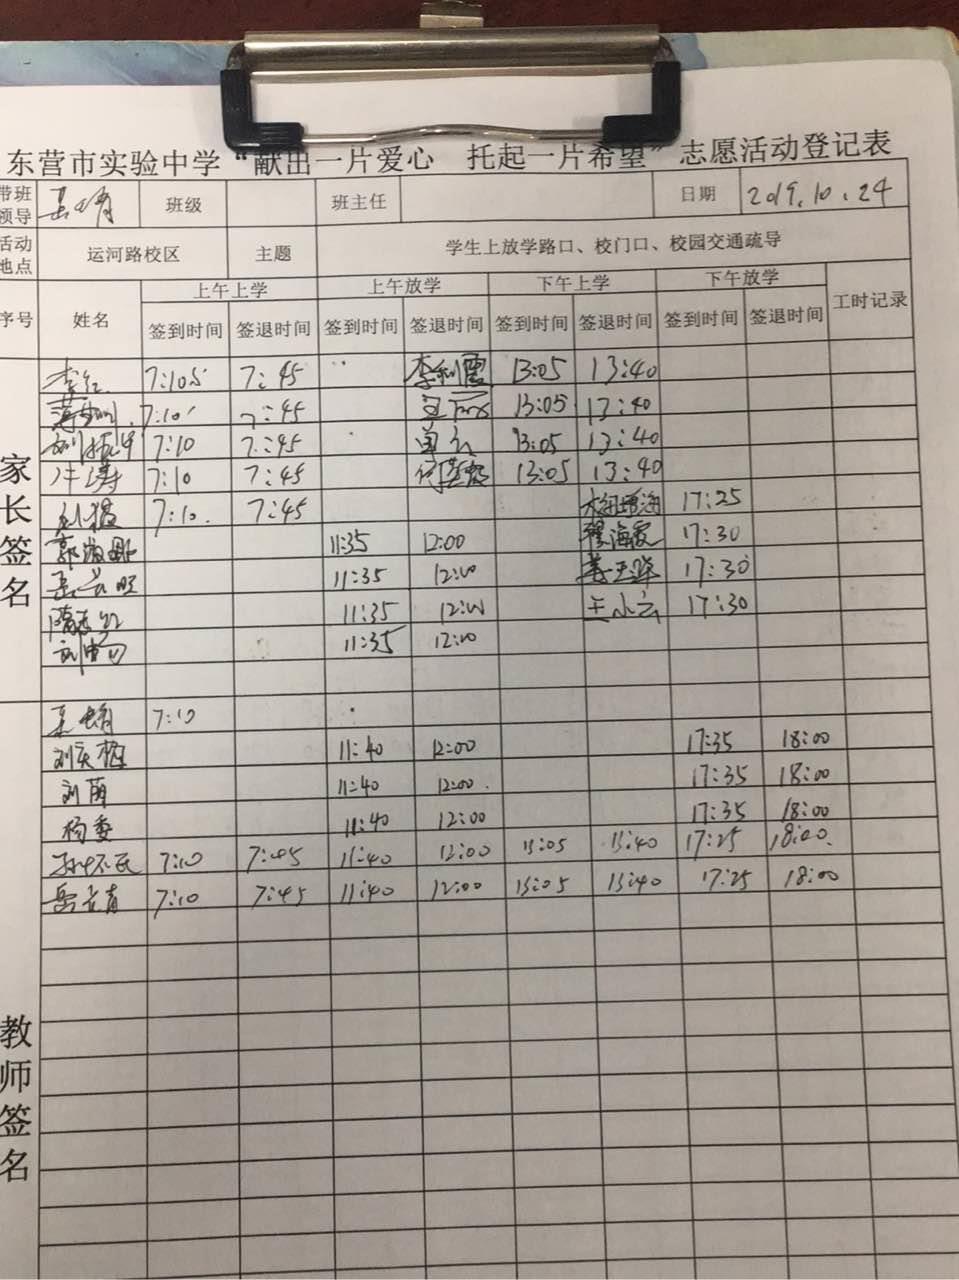 东营市实验中学“献出一片爱心 托起一片希望”志愿活动登记表
带班领导 班级 班主任 日期 2019.10.24
活动地点 运河路校区 主题 学生上放学路口、校门口、校园交通疏导
序号 姓名 上午上学 上午放学 下午上学 下午放学 工时记录
签到时间 签退时间 签到时间 签退时间 签到时间 签退时间 签到时间 签退时间
家长签名
李红 7:105 7:45 李利霞 13:05 13:40
7:10 7:45 13:05 13:40
7:10 7:45 13:05 13:40
7:10 7:45 13:05 13:40
7:10. 7:45 17:25
11:35 12:00 穆海霞 17:30
11:35 12:00 17:30
11:35 12:00 王小云 17:30
11:35 12:00
教师签名
7:10
刘庆梅 11:40 12:00 17:35 18:00
刘萌 11:40 12:00. 17:35 18:00
杨委 11:40 12:00 17:35 18:00
孙怀民 7:10 7:45 11:40 12:00 13:05 13:40 17:25 18:00.
岳元青 7:10 7:45 11:40 12:00 13:05 13:40 17:25 18:00